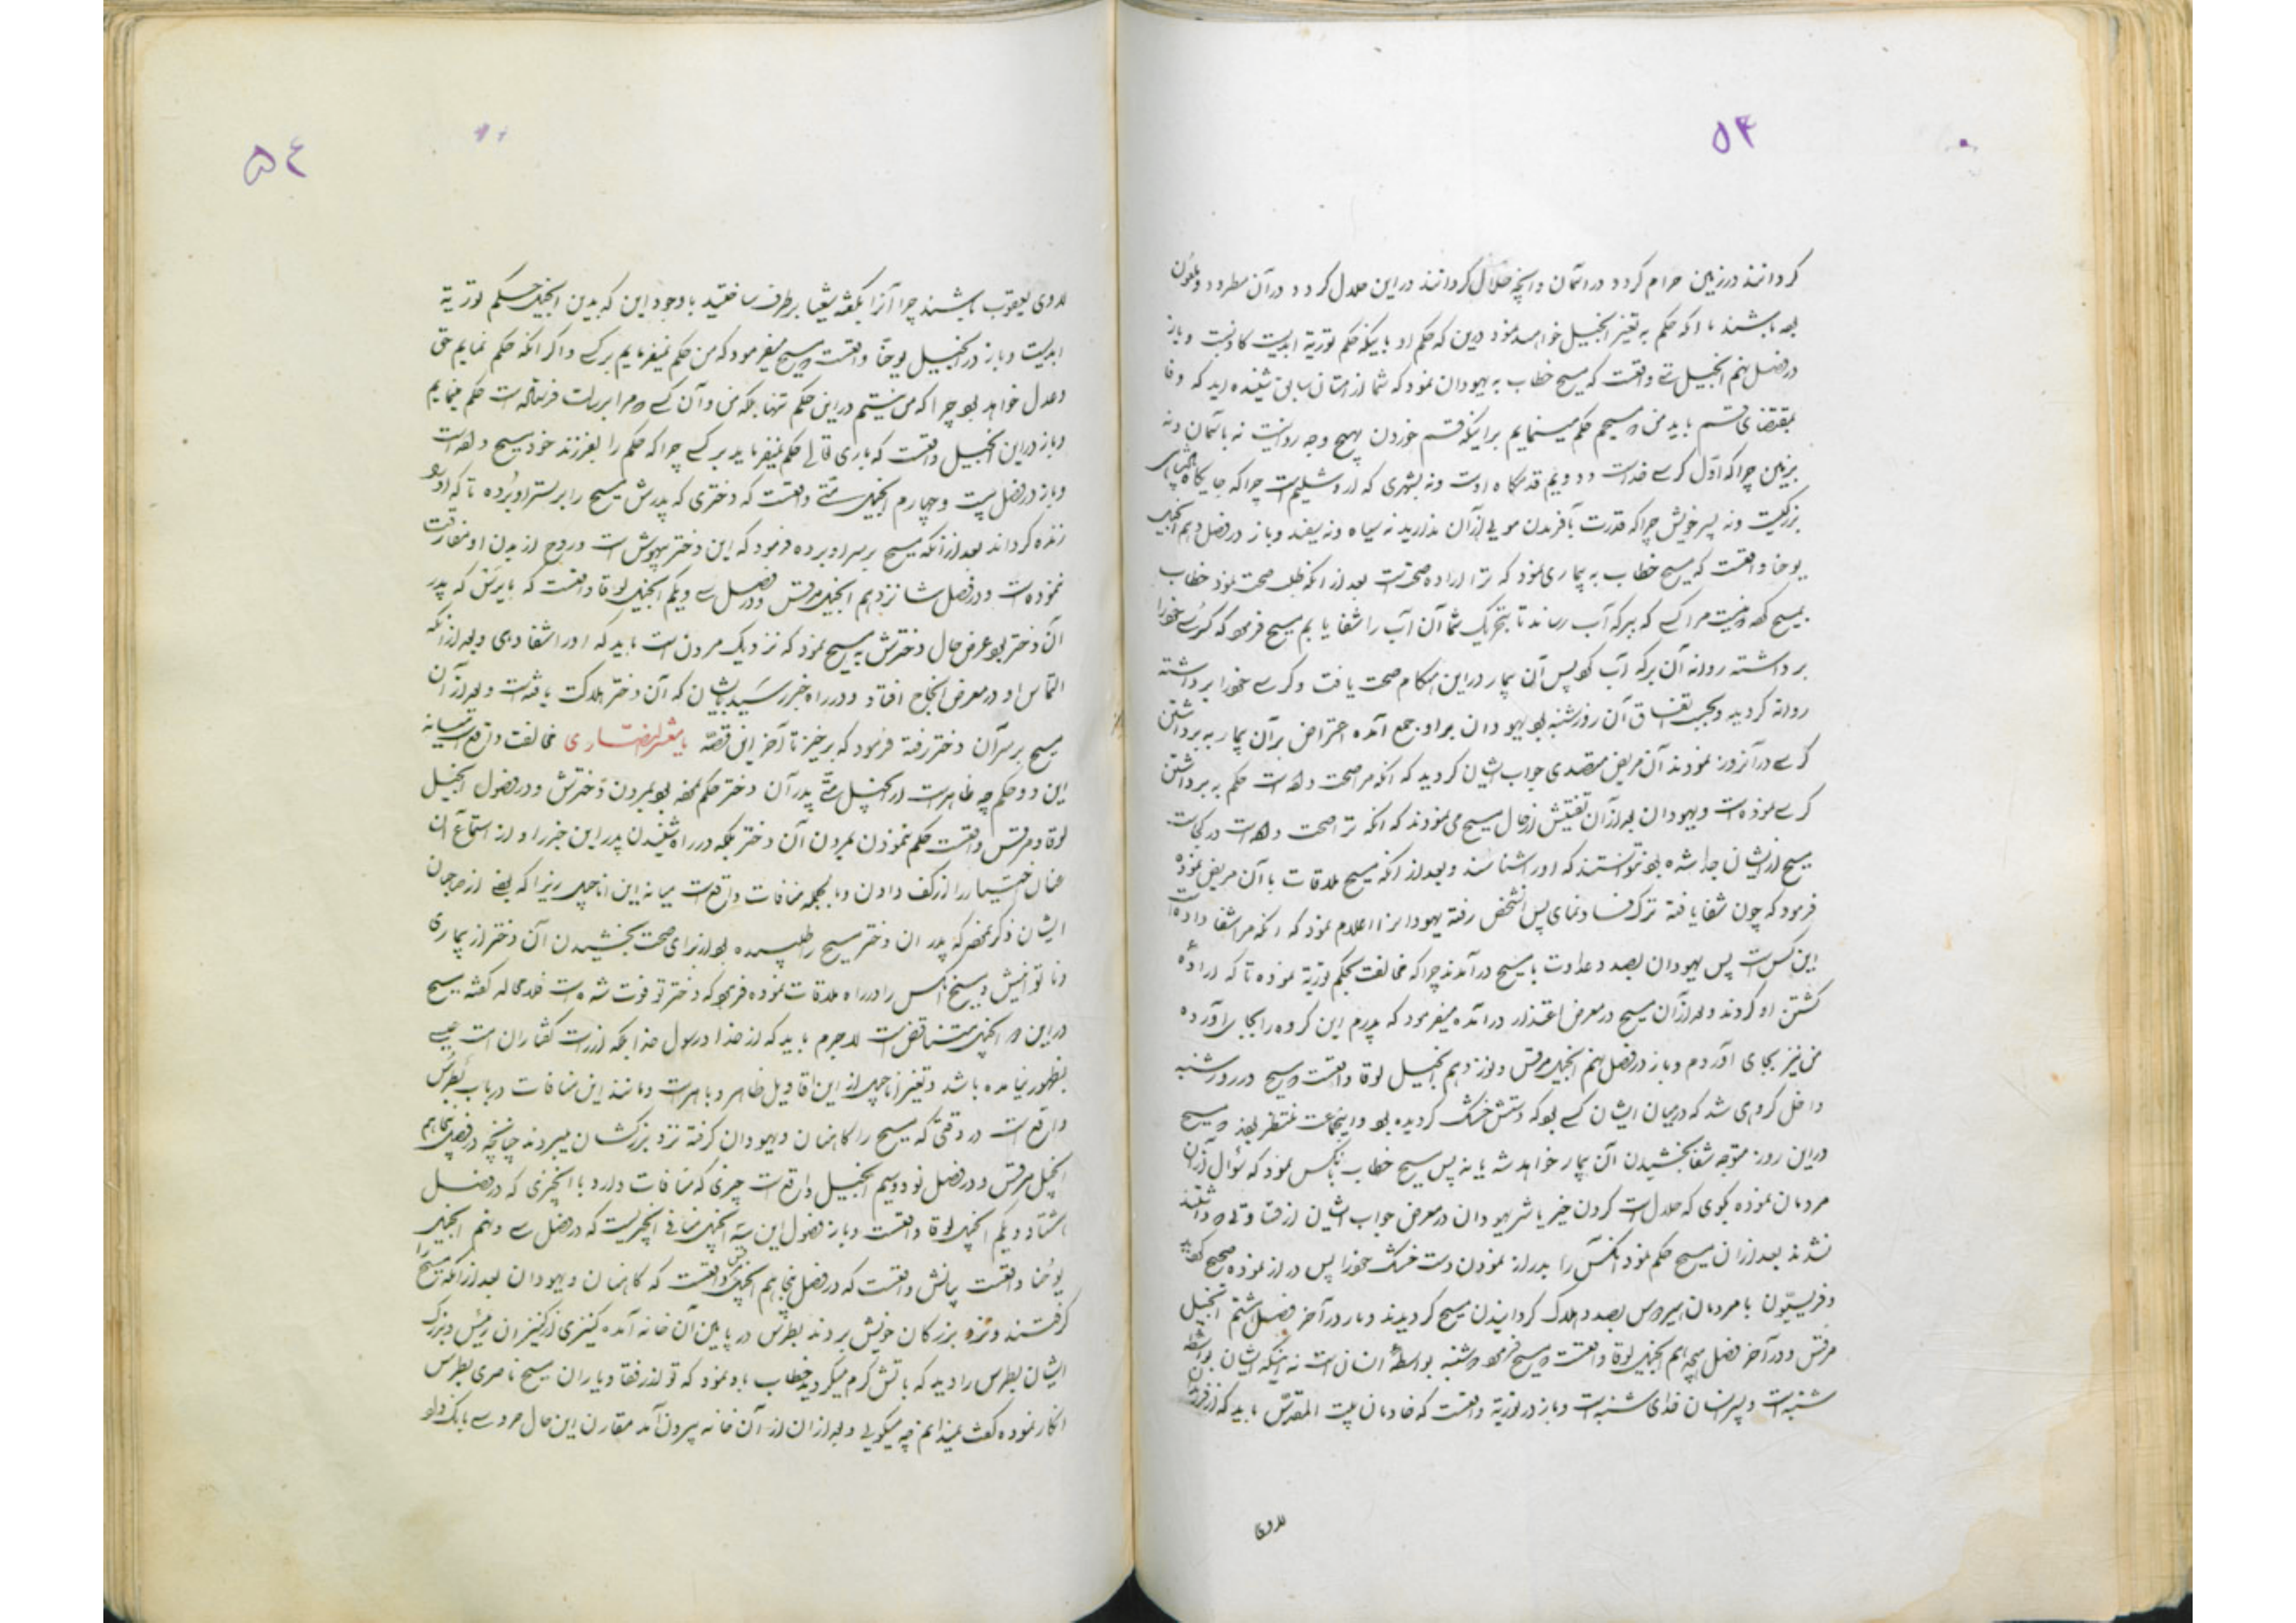 ۵۳
کردانند در زمین حرام کردد در آسمان وانچه حلال کردانند در این حلال کردد در آن مطرود و ملعون
بوده باشند با آنکه حکم به تغیر انجیل خواهد نمود درین که حکم او باینکه حکم توریة ابدیست کاذبست و باز
در فصل نهم انجیل متی واقعست که مسیح خطاب به یهودان نمود که شما از استان سابق شنیده اید که وفا
بمقتضای قسم باید من که مسیحم حکم مینمایم براینکه قسم خوردن بهیچ وجه روا نیست نه باسمان ونه
بزمین چراکه اول کرسی خداست و دویم قدمگاه اوست ونه بشهری که اروشلیم است چراکه جایگاه پادشاهی
بزرکیست ونه بسر خویش چراکه قدرت بآفریدن مویی از آن ندارید نه سیاه ونه سفید و باز در فصل دهم انجیل
یوحنا واقعست که مسیح خطاب به بیماری نمود که ترا اراده صحتست بعد از آنکه طلب صحت نمود خطاب
بمسیح که نیست مرا کسی که ببرکه آب رساند تا بتحریک شما آن آب را شفا یابم مسیح فرمود که کرسی خود را
برداشته روانه آن برکه آب کو پس آن بیمار در این هنکام صحت یافت و کرسی خود را برداشته
روانه کردید و بحسب اتفاق آن روز شنبه بود یهودان بر او جمع آمده اعتراض بر آن بیمار به برداشتن
کرسی در آنروز نمودند آن مریض متصدی جواب ایشان کردید که آنکه مرا صحت داده است حکم به برداشتن
کرسی نموده است و یهودان بعد از آن تفتیش از حال مسیح می نمودند که آنکه ترا صحت داده است در کجاست
مسیح از ایشان جدا شده بود نتوانستند که او را شناسند و بعد از آنکه مسیح ملاقات با آن مریض نمود
فرمود که چون شفا یافته ترک فساد نمای پس آنشخص رفته یهودانرا اعلام نمود که آنکه مرا شفا داده است
این کس است پس یهودان بصدد عداوت با مسیح درآمدند چراکه مخالفت بحکم توریة نموده تا که ارادهٔ
کشتن او کردند و بعد از آن مسیح در معرض اعتذار درآمده میفرمود که پدرم این کروه را بجای آورده
من نیز بجای آوردم و باز در فصل نهم انجیل مرقس و نوزدهم انجیل لوقا واقعست که مسیح در روز شنبه
داخل کروهی شد که در میان ایشان کسی بود که دستش خشک کردیده بود و اینجماعت منتظر بودند که مسیح
در این روز متوجه شفا بخشیدن آن بیمار خواهد شد یا نه پس مسیح خطاب بآنکس نمود که سؤال از این
مردمان نموده بکوی که حلال است کردن خیر یا شر یهودان در معرض جواب ایشان از قساوتی که داشتند
نشدند بعد از آن مسیح حکم نمود آنکس را بدراز نمودن دست خشک خود را پس دراز نموده صحیح کردید
و فریسیّون با مردمان هیرودس بصدد هلاک کردانیدن مسیح کردیدند و باز در آخر فصل هشتم انجیل
مرقس و در آخر فصل هیجدهم انجیل لوقا واقعست که مسیح فرمود که شنبه بواسطهٔ انسان است نه اینکه ایشان بواسطهٔ
شنبه است و پسر انسان خدای شنبه است و باز در توریة واقعست که خادمان بیت المقدس باید که از فرزندان
لاوی
۵٤
لاوی یعقوب باشند چرا آنرا بکفتهٔ شعیا برطرف ساختید با وجود این که بدین انجیل حکم توریة
ابدیست و باز در انجیل یوحنا واقعست که مسیح میفرمود که من حکم نمیفرمایم بر کسی و اگر آنکه حکم نمایم حق
و عدل خواهد بود چراکه من نیستم در این حکم تنها بلکه من و آن کسی که مرا برسالت فرستاده است حکم مینمایم
و باز در این انجیل واقعست که باری تعالی حکم نمیفرماید بر کسی چراکه حکم را بفرزند خود مسیح داده است
و باز در فصل بیست و چهارم انجیل متی واقعست که دختری که پدرش مسیح را بر بستر او برده تا که او را
زنده کرداند بعد از آنکه مسیح بر سر او برده فرمود که این دختر بیهوش است و روح از بدن او مفارقت
ننموده است و در فصل شانزدهم انجیل مرقس و در فصل سی و یکم انجیل لوقا واقعست که یایرس که پدر
آن دختر بود عرض حال دخترش به مسیح نمود که نزدیک مردن است باید که او را شفا دهی و بعد از آنکه
التماس او در معرض انجاح افتاد و در راه خبر رسید بایشان که آن دختر هلاکت یافته است و بعد از آن
مسیح بر سر آن دختر رفته فرمود که برخیز تا آخر این قصّه یا معشر النصاری مخالفت واقعست میانه
این دو حکم چه ظاهر است از انجیل متی پدر آن دختر حکم نموده بود بمردن دخترش و در فصول انجیل
لوقا و مرقس واقعست حکم ننمودن بمردن آن دختر بلکه در راه شنیدن پدر این خبر را و از استماع آن
عنان اختیار را از کف دادن و بالجمله منافات واقعست میانه این اناجیل زیرا که بعضی از صاحبان
ایشان ذکر نموده که پدر آن دختر مسیح را طلبیده بود از برای صحت بخشیدن آن دختر از بیماری
و ناتوانیش و مسیح آنکس را در راه ملاقات نموده فرمود که دختر تو فوت شده است فلامحاله کفتهٔ مسیح
در این دو انجیل متناقض است لاجرم باید که از خدا و رسول خدا بلکه از راست کفتاران امت عیسی
بظهور نیامده باشد و تغیر اناجیل از این اقاویل ظاهر و باهر است و مانند این منافات در باب پطرس
واقع است در وقتی که مسیح را کاهنان و یهودان کرفته نزد بزرکشان میبردند چنانچه در فصل پنجاهم
انجیل مرقس و در فصل نود و سیم انجیل واقع است چیزی که منافات دارد با آنچیزی که در فصل
هشتاد و یکم انجیل لوقا واقعست و باز فصول این سه انجیل منافی آنچیزیست که در فصل سی و نهم انجیل
یوحنا واقعست بیانش واقعست که در فصل پنجاهم انجیل مرقس واقعست که کاهنان و یهودان بعد از آنکه مسیح را
کرفتند و نزد بزرکان خویش بردند پطرس در پایین آن خانه آمده کنیزی از کنیزان رئیس و بزرک
ایشان پطرس را دید که باتش کرم میکردید خطاب باو نمود که تو از رفقا و یاران مسیح ناصری پطرس
انکار نموده کفت نمیدانم چه میکویی و بعد از آن از آن خانه بیرون آمد مقارن این حال خروسی بانک داد